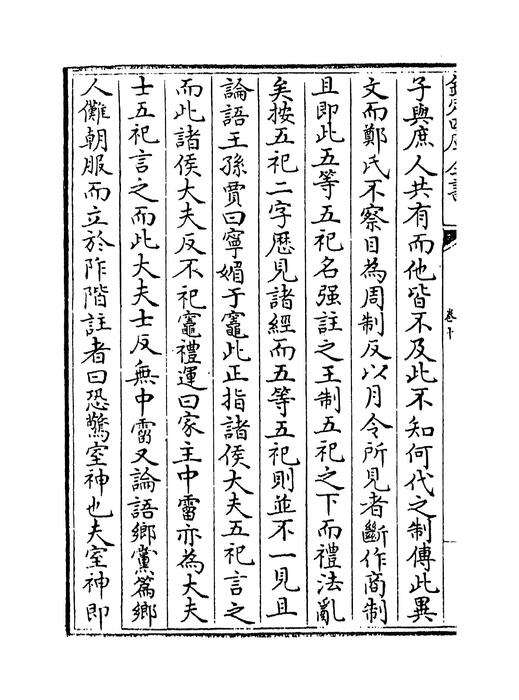 欽定四庫全書
卷十
子與庶人共有而他皆不及此不知何代之制傳此異
文而鄭氏不察目為周制反以月令所見者斷作商制
且即此五等五祀名强註之王制五祀之下而禮法亂
矣按五祀二字歷見諸經而五等五祀則並不一見且
論語王孫賈曰寧媚于竈此正指諸侯大夫五祀言之
而此諸侯大夫反不祀竈禮運曰家主中霤亦為大夫
士五祀言之而此大夫士反無中霤又論語鄉黨篇鄉
人儺朝服而立於阼階註者曰恐驚室神也夫室神即